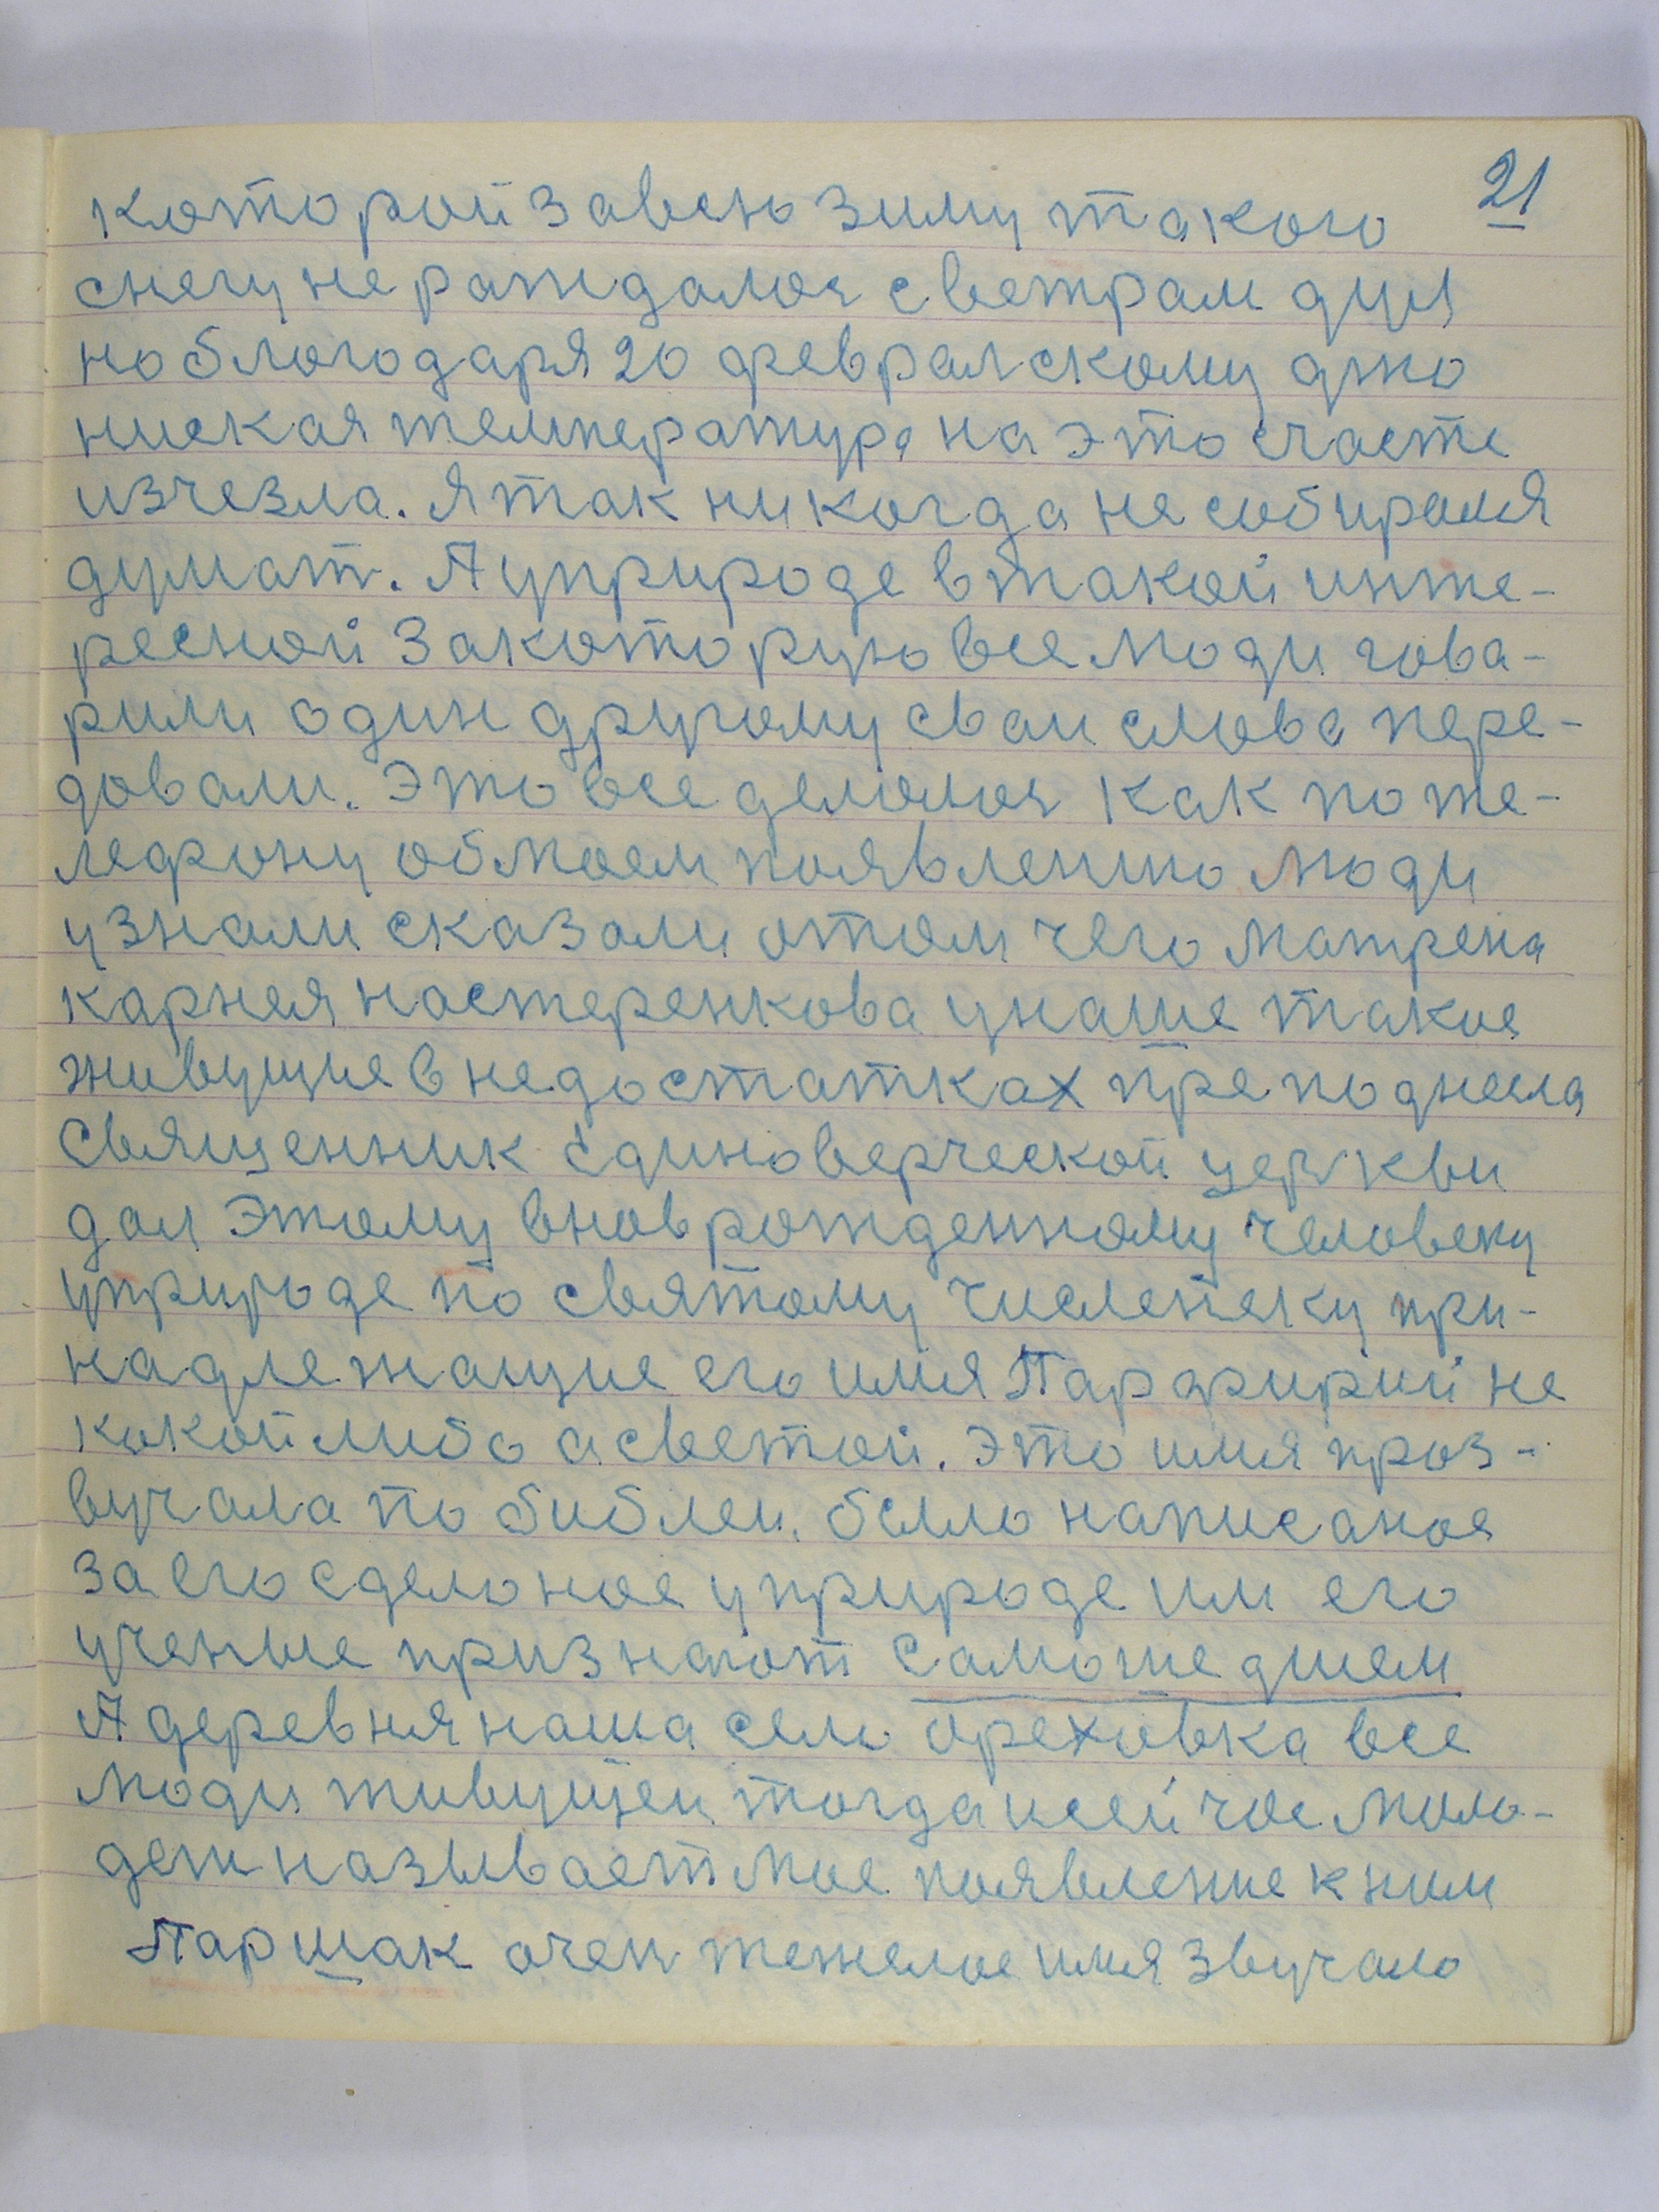 21
которой за всю зиму такого
снегу не раждалос с ветрам дул
но блогодаря 20 февралскому дню
ниская температура на это счасте
изчезла. Я так никогда не собирался
думат. А у природе в такой инте-
ресной за которую все люди гова-
рили один другому сваи слова пере-
довали. Это все делалос как по те-
лефону об моем появлению люди
узнали сказали о том чего матрена
карнея нестеренкова у наше такие
живущие в недостатках преподнела
Священник Единоверческой церкви
дал этому вновврожденному человеку
у природе по святому численеку при-
надлежащие его имя Парфирий не
кокой либо а светой. Это имя проз-
вучала по библеи. было написаное
за его сделоное у природе им его
ученые признают самошедшем
А деревня наша село ореховка все
люди живущеи тогда и сейчос моло-
деж называет мое появление к ним
Паршак очен тежелое имя звучало